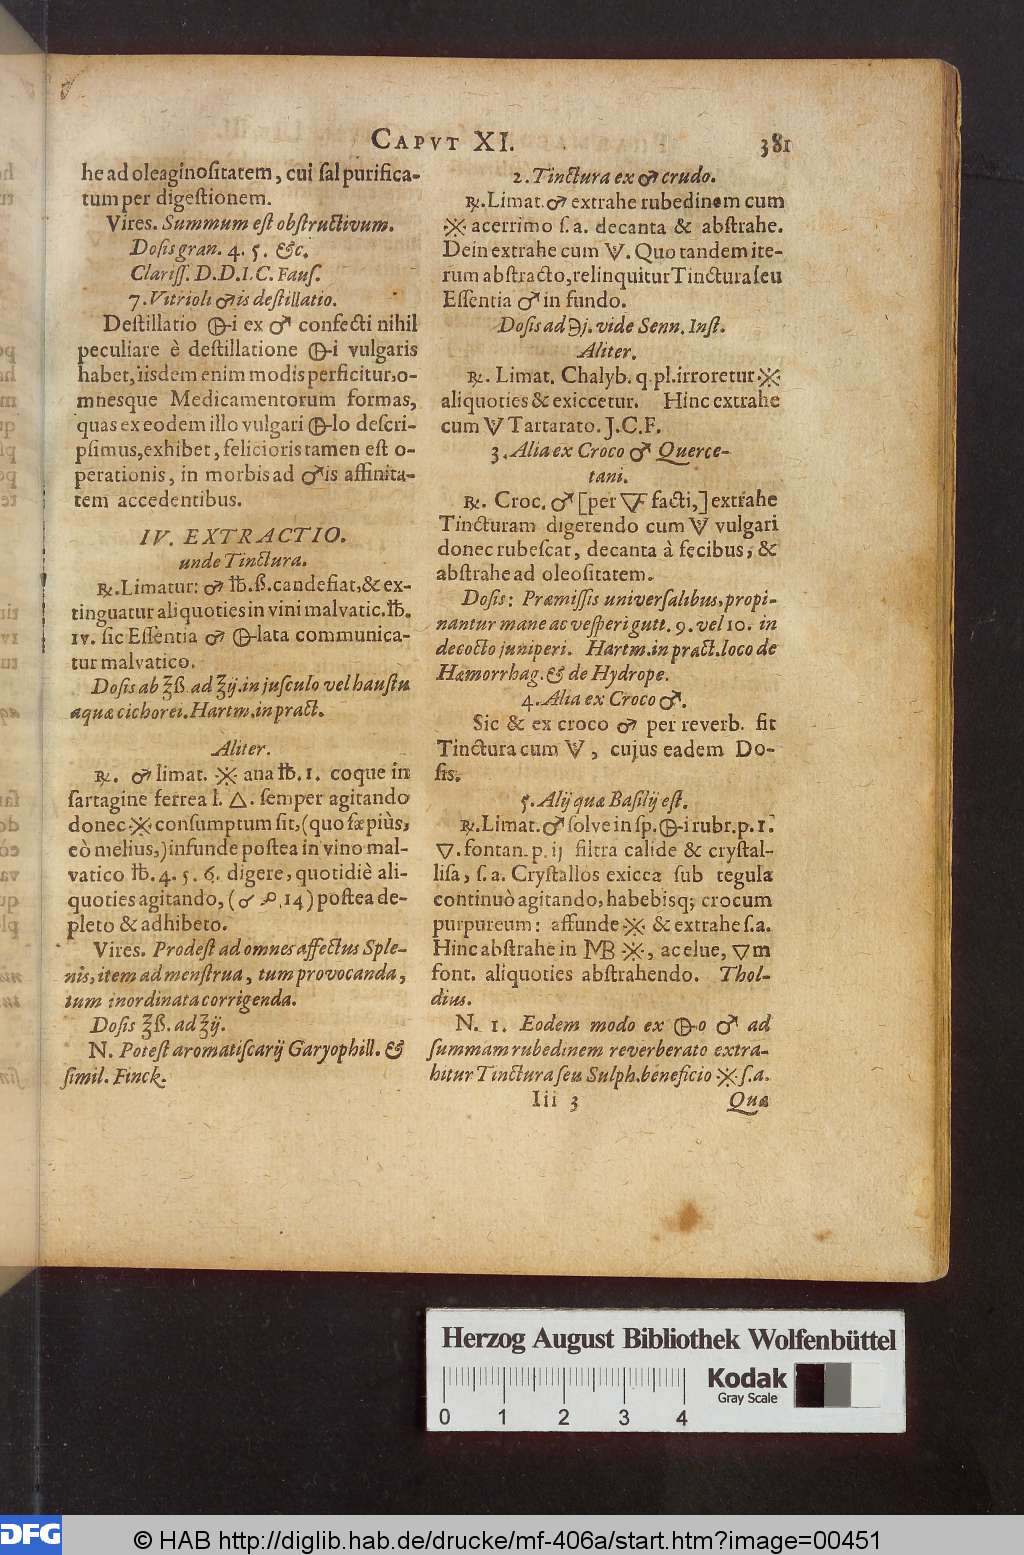 CAPVT XI. 381
he ad oleaginoſitatem, cui ſal purifica-
tum per digeſtionem.
Vires. Summum eſt obſtructivum.
Doſis gran. 4. 5. &c.
Clariſſ. D. D. I. C. Fauſ.
7. Vitrioli ♂is deſtillatio.
Deſtillatio 🜖-i ex ♂ confecti nihil
peculiare è deſtillatione 🜖-i vulgaris
habet, iisdem enim modis perficitur, o-
mnesque Medicamentorum formas,
quas ex eodem illo vulgari 🜖-lo deſcri-
pſimus, exhibet, felicioris tamen eſt o-
perationis, in morbis ad ♂is affinita-
tem accedentibus.
IV. EXTRACTIO.
unde Tinctura.
℞. Limatur: ♂ ℔. ß. candefiat, & ex-
tinguatur aliquoties in vini malvatic. ℔.
IV. ſic Eſſentia ♂ 🜖-lata communica-
tur malvatico.
Doſis ab ʒß. ad ʒij. in juſculo vel hauſtu
aquæ cichorei. Hartm. in pract.
Aliter.
℞. ♂ limat. 🜊 ana ℔. 1. coque in
ſartagine ferrea l. 🜂. ſemper agitando
donec 🜊 conſumptum ſit, (quo ſæpiùs,
eò melius,) infunde poſtea in vino mal-
vatico ℔. 4. 5. 6. digere, quotidiè ali-
quoties agitando, ( 14) poſtea de-
pleto & adhibeto.
Vires. Prodeſt ad omnes affectus Sple-
nis, item ad menſtrua, tum provocanda,
tum inordinata corrigenda.
Doſis ʒß. ad ʒij.
N. Poteſt aromatiſcarij Garyophill. &
ſimil. Finck.
2. Tinctura ex ♂ crudo.
℞. Limat. ♂ extrahe rubedinem cum
🜊 acerrimo ſ. a. decanta & abſtrahe.
Dein extrahe cum 🜈. Quo tandem ite-
rum abſtracto, relinquitur Tinctura ſeu
Eſſentia ♂ in fundo.
Doſis ad ℈j. vide Senn. Inſt.
Aliter.
℞. Limat. Chalyb. q. pl. irroretur 🜊
aliquoties & exiccetur. Hinc extrahe
cum 🜈 Tartarato. J. C. F.
3. Alia ex Croco ♂ Querce-
tani.
℞. Croc. ♂ [per 🜅 facti,] extrahe
Tincturam digerendo cum 🜈 vulgari
donec rubeſcat, decanta à fecibus, &
abſtrahe ad oleoſitatem.
Doſis: Præmiſſis univerſalibus, propi-
nantur mane ac veſperi gutt. 9. vel 10. in
decocto juniperi. Hartm. in pract. loco de
Hæmorrhag. & de Hydrope.
4. Alia ex Croco ♂.
Sic & ex croco ♂ per reverb. fit
Tinctura cum 🜈, cujus eadem Do-
ſis.
5. Alij quæ Baſilij eſt.
℞. Limat. ♂ ſolve in ſp. 🜖-i rubr. p. 1.
🜄. fontan. p. ij filtra calide & cryſtal-
liſa, ſ. a. Cryſtallos exicca ſub tegula
continuò agitando, habebisq; crocum
purpureum: affunde 🜊 & extrahe ſ. a.
Hinc abſtrahe in MB 🜊, ac elue, 🜄m
font. aliquoties abſtrahendo. Thol-
dius.
N. 1. Eodem modo ex 🜖-o ♂ ad
ſummam rubedinem reverberato extra-
hitur Tinctura ſeu Sulph. beneficio 🜊 ſ. a.
Iii 3 Quæ
Herzog August Bibliothek Wolfenbüttel
Kodak
Gray Scale
0 1 2 3 4
DFG © HAB http://diglib.hab.de/drucke/mf-406a/start.htm?image=00451